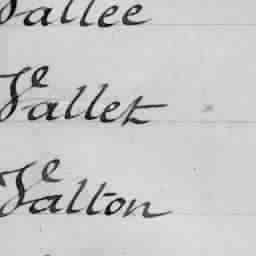 Vallee
Vallet
Valton